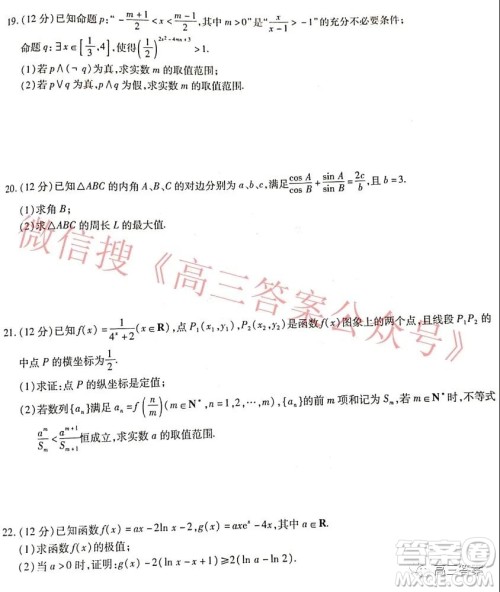 19. (12 分)已知命题 p:“$-\frac{m+1}{2}<x<\frac{m-1}{2}$,其中 m>0”是“$\frac{x}{x-1}>-1$”的充分不必要条件;
命题 q:∃x∈$[\frac{1}{3},4]$,使得$(\frac{1}{2})^{2x^2-4mx+3}>1$.
(1)若 p∧(¬q)为真,求实数 m 的取值范围;
(2)若 p∨q 为真,p∧q 为假,求实数 m 的取值范围.
20. (12 分)已知△ABC 的内角 A、B、C 的对边分别为 a、b、c,满足$\frac{\cos A}{\cos B}+\frac{\sin A}{\sin B}=\frac{2c}{b}$,且 b=3.
(1)求角 B;
(2)求△ABC 的周长 L 的最大值.
21. (12 分)已知 f(x)=$\frac{1}{4^x+2}$(x∈R),点 P₁(x₁,y₁),P₂(x₂,y₂)是函数 f(x)图象上的两个点,且线段 P₁P₂ 的
中点 P 的横坐标为$\frac{1}{2}$.
(1)求证:点 P 的纵坐标是定值;
(2)若数列{aₙ}满足 aₙ=f$(\frac{n}{m})$(m∈N*,n=1,2,…,m),{aₙ}的前 m 项和为 Sₘ,若 m∈N* 时,不等式
$\frac{a^m}{S_m}<\frac{a^{m+1}}{S_{m+1}}$恒成立,求实数 a 的取值范围.
22. (12 分)已知函数 f(x)=ax-2ln x-2,g(x)=axeˣ-4x,其中 a∈R.
(1)求函数 f(x)的极值;
(2)当 a>0 时,证明:g(x)-2(ln x-x+1)≥2(ln a-ln 2).
微信搜《高三答案公众号》
高三答案
答案圈
MXQE.COM